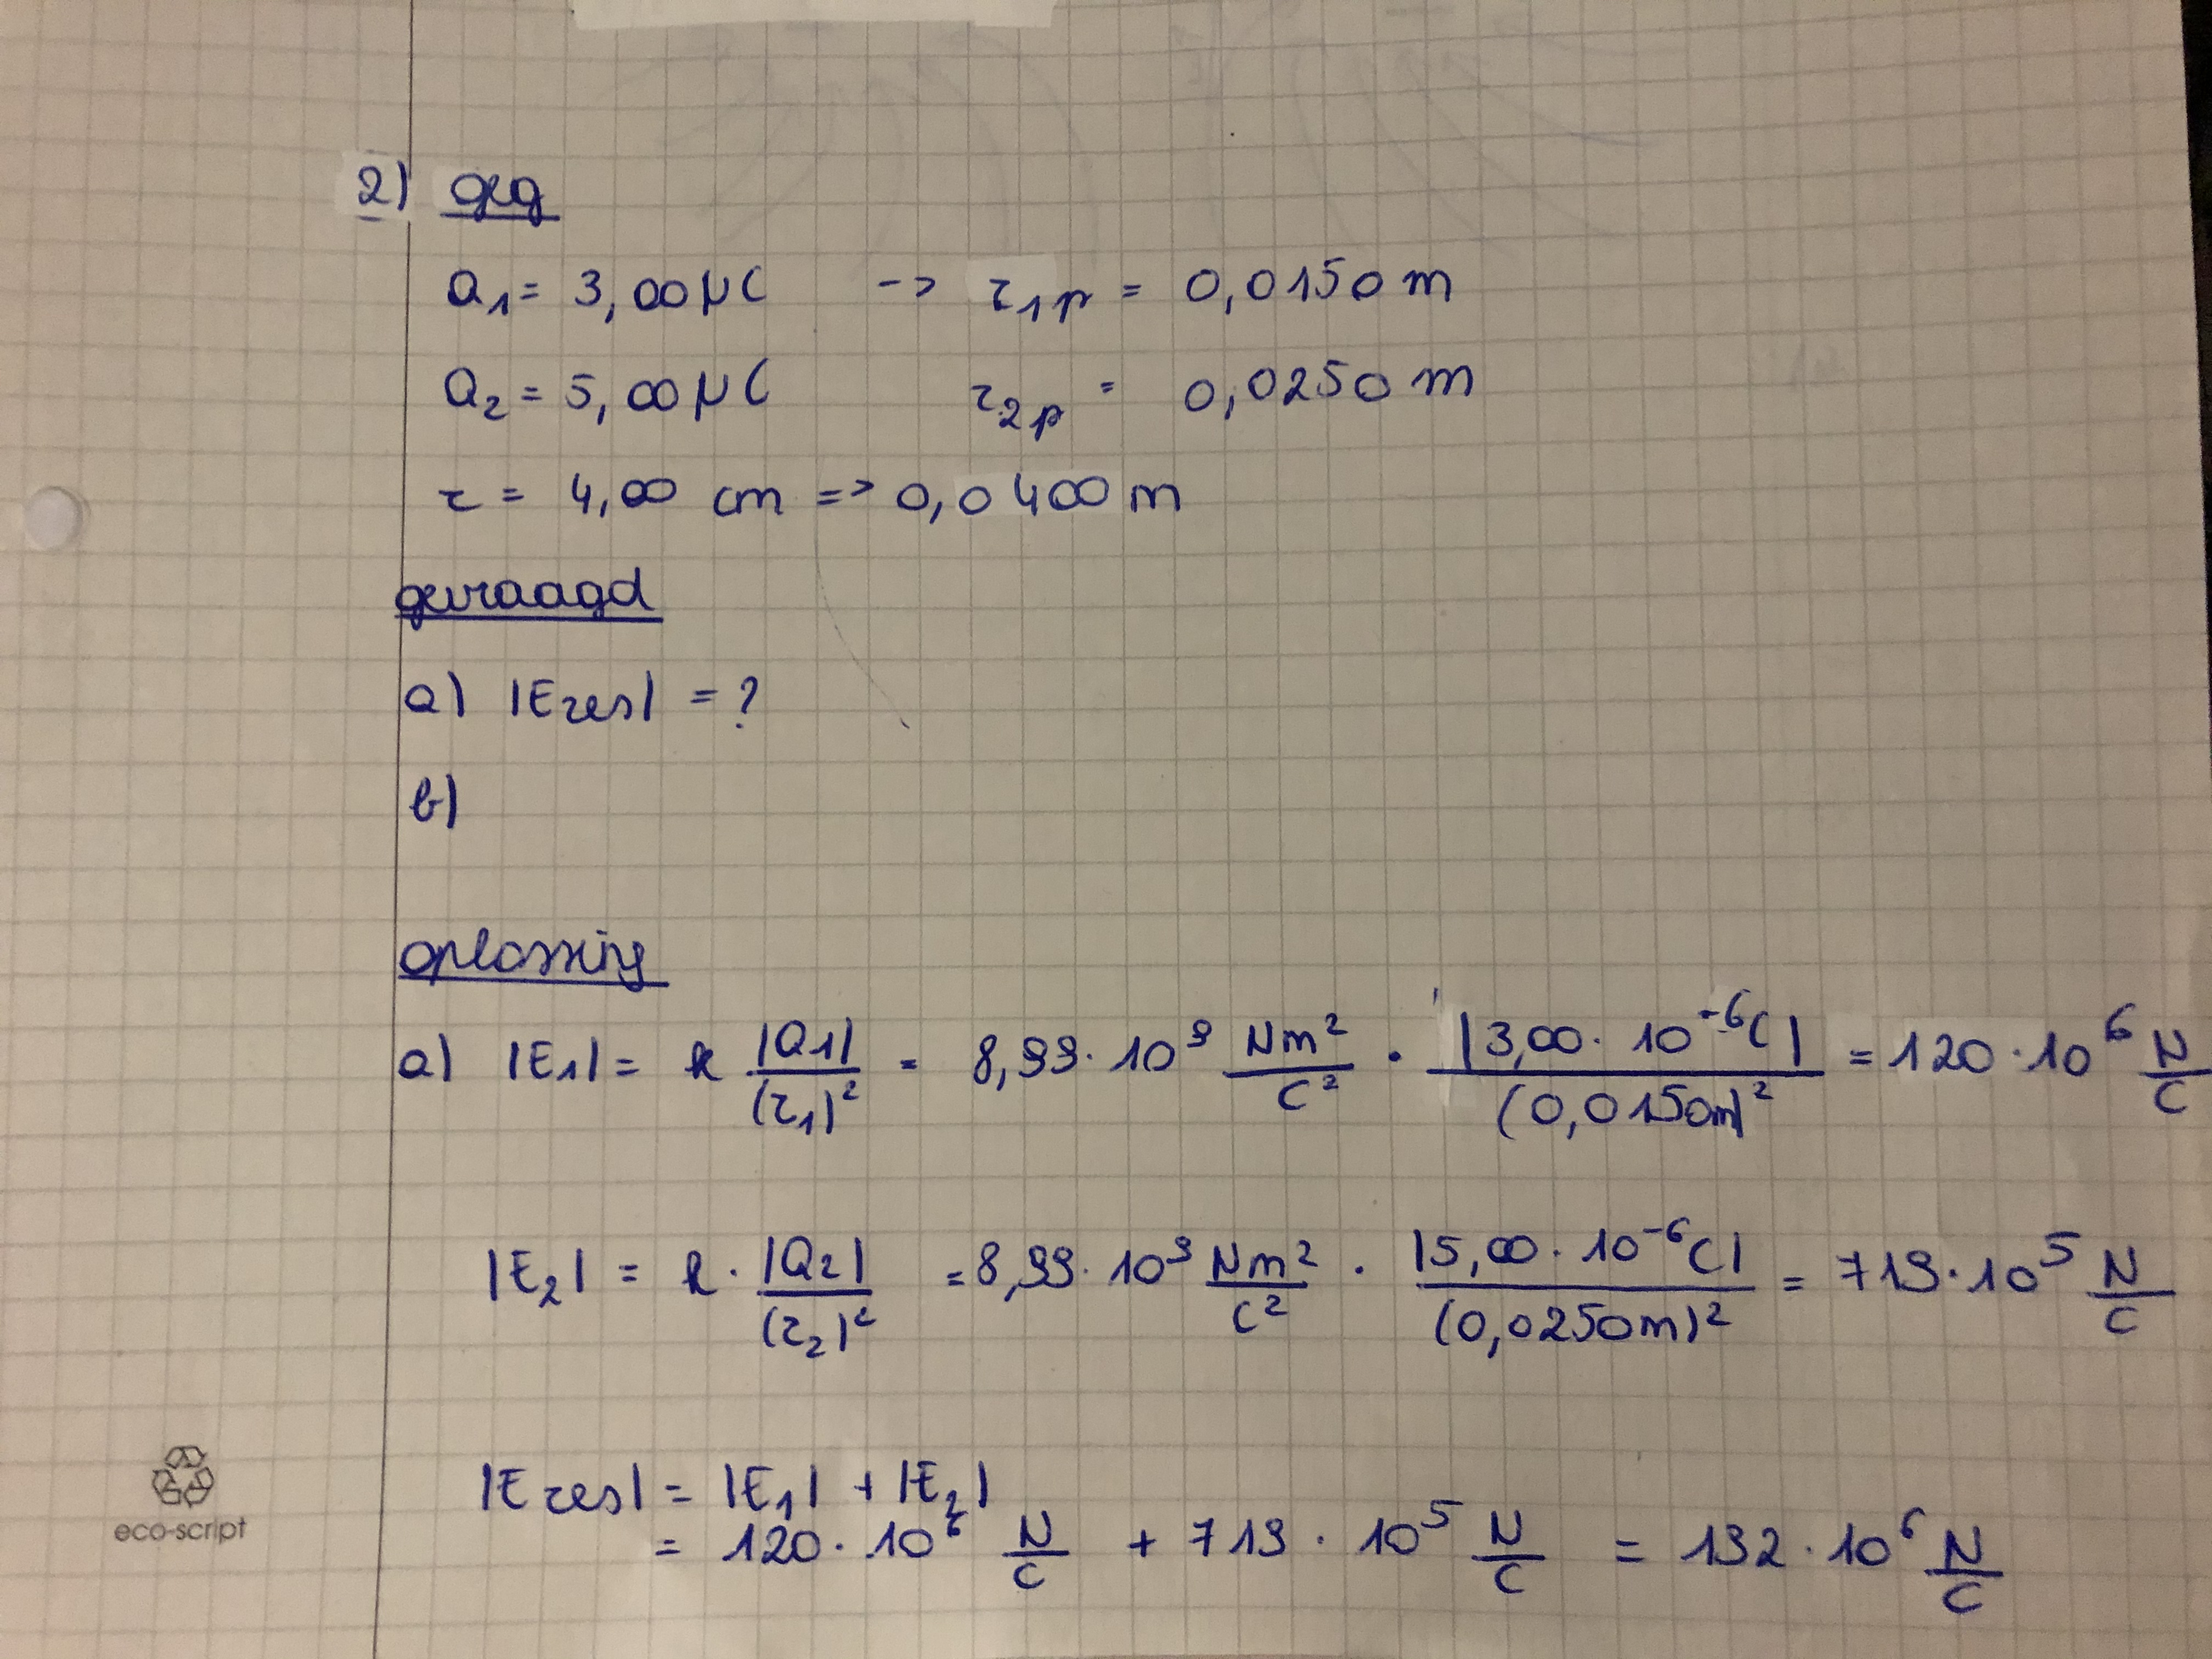 2) geg
Q₁ = 3,00 μC -> r₁p = 0,0150 m
Q₂ = 5,00 μC r₂p = 0,0250 m
r = 4,00 cm => 0,0400 m
gevraagd
a) |Eres| = ?
b)
oplossing
a) |E₁| = k |Q₁|/(r₁)² = 8,99 · 10⁹ Nm²/C² · |3,00 · 10⁻⁶C|/(0,0150m)² = 120 · 10⁶ N/C
|E₂| = k · |Q₂|/(r₂)² = 8,99 · 10⁹ Nm²/C² · |5,00 · 10⁻⁶C|/(0,0250m)² = 719 · 10⁵ N/C
|Eres| = |E₁| + |E₂|
= 120 · 10⁶ N/C + 719 · 10⁵ N/C = 192 · 10⁶ N/C
eco-script